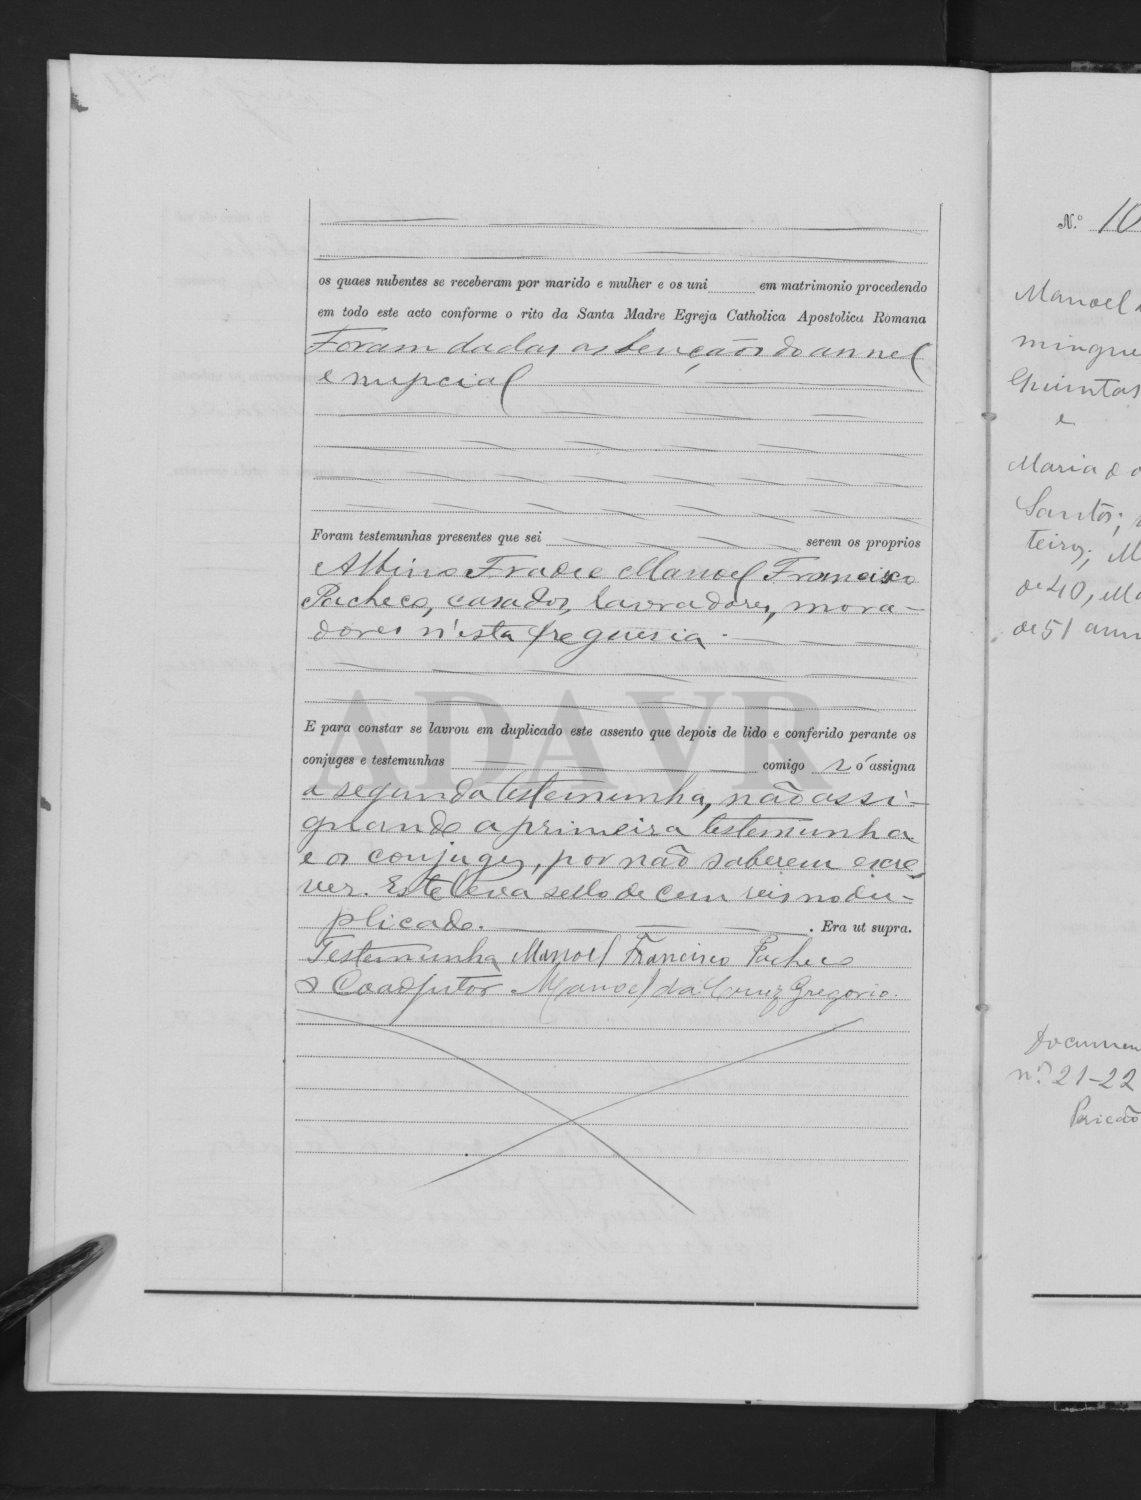 os quaes nubentes se receberam por marido e mulher e os uni em matrimonio procedendo
em todo este acto conforme o rito da Santa Madre Egreja Catholica Apostolica Romana
Foram dadas as bençãos do annel
e nupcial
Foram testemunhas presentes que sei serem os proprios
Albino Frade e Manoel Francisco
Pacheco, casados, lavradores, mora-
dores n'esta freguesia.
ADAVR
E para constar se lavrou em duplicado este assento que depois de lido e conferido perante os
conjuges e testemunhas comigo só assigna
a segunda testemunha, não assi-
gnando a primeira testemunha
e os conjuges, por não saberem escre-
ver. Este leva sello de cem reis no du-
plicado. . Era ut supra.
Testemunha Manoel Francisco Pacheco
O Coadjutor Manoel da Cruz Gregorio.
N.º 10
Manoel
mingue
Quintas
e
Maria d
Santos;
teiros; M
de 40, Ma
de 51 ann
Documen
n.os 21-22